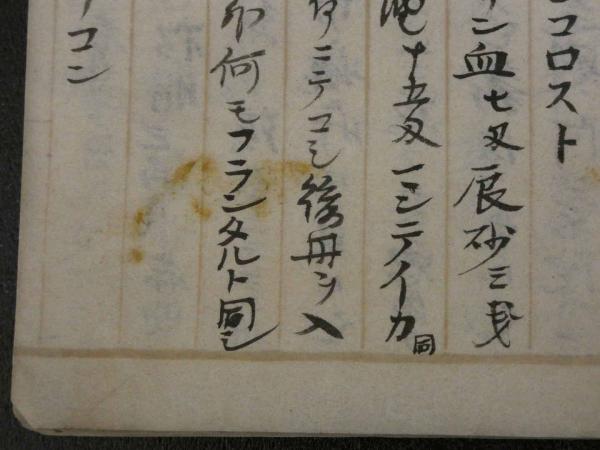 コロスト
ン血七匁辰砂三戔
十五匁一ミニテイカ同
ニテコシ後丹ヲ入
何モフランタルト同シ
コン